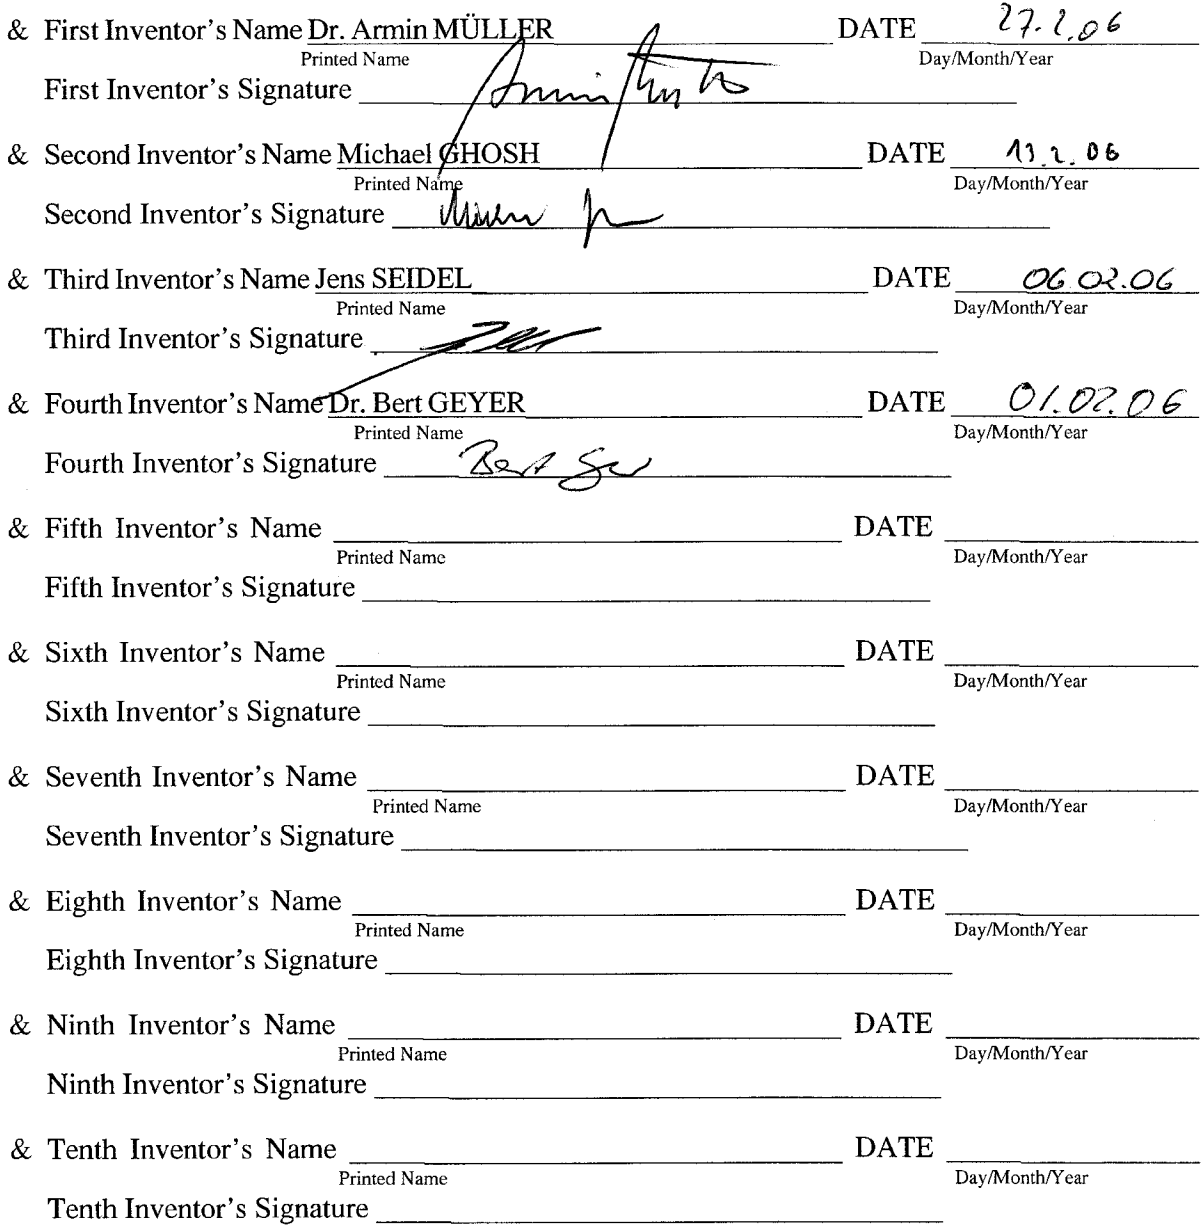 & First Inventor's Name Dr. Armin MÜLLER DATE 27.2.06
Printed Name Day/Month/Year
First Inventor's Signature
& Second Inventor's Name Michael GHOSH DATE 13.2.06
Printed Name Day/Month/Year
Second Inventor's Signature
& Third Inventor's Name Jens SEIDEL DATE 06.02.06
Printed Name Day/Month/Year
Third Inventor's Signature
& Fourth Inventor's Name Dr. Bert GEYER DATE 01.02.06
Printed Name Day/Month/Year
Fourth Inventor's Signature Bert
& Fifth Inventor's Name DATE
Printed Name Day/Month/Year
Fifth Inventor's Signature
& Sixth Inventor's Name DATE
Printed Name Day/Month/Year
Sixth Inventor's Signature
& Seventh Inventor's Name DATE
Printed Name Day/Month/Year
Seventh Inventor's Signature
& Eighth Inventor's Name DATE
Printed Name Day/Month/Year
Eighth Inventor's Signature
& Ninth Inventor's Name DATE
Printed Name Day/Month/Year
Ninth Inventor's Signature
& Tenth Inventor's Name DATE
Printed Name Day/Month/Year
Tenth Inventor's Signature